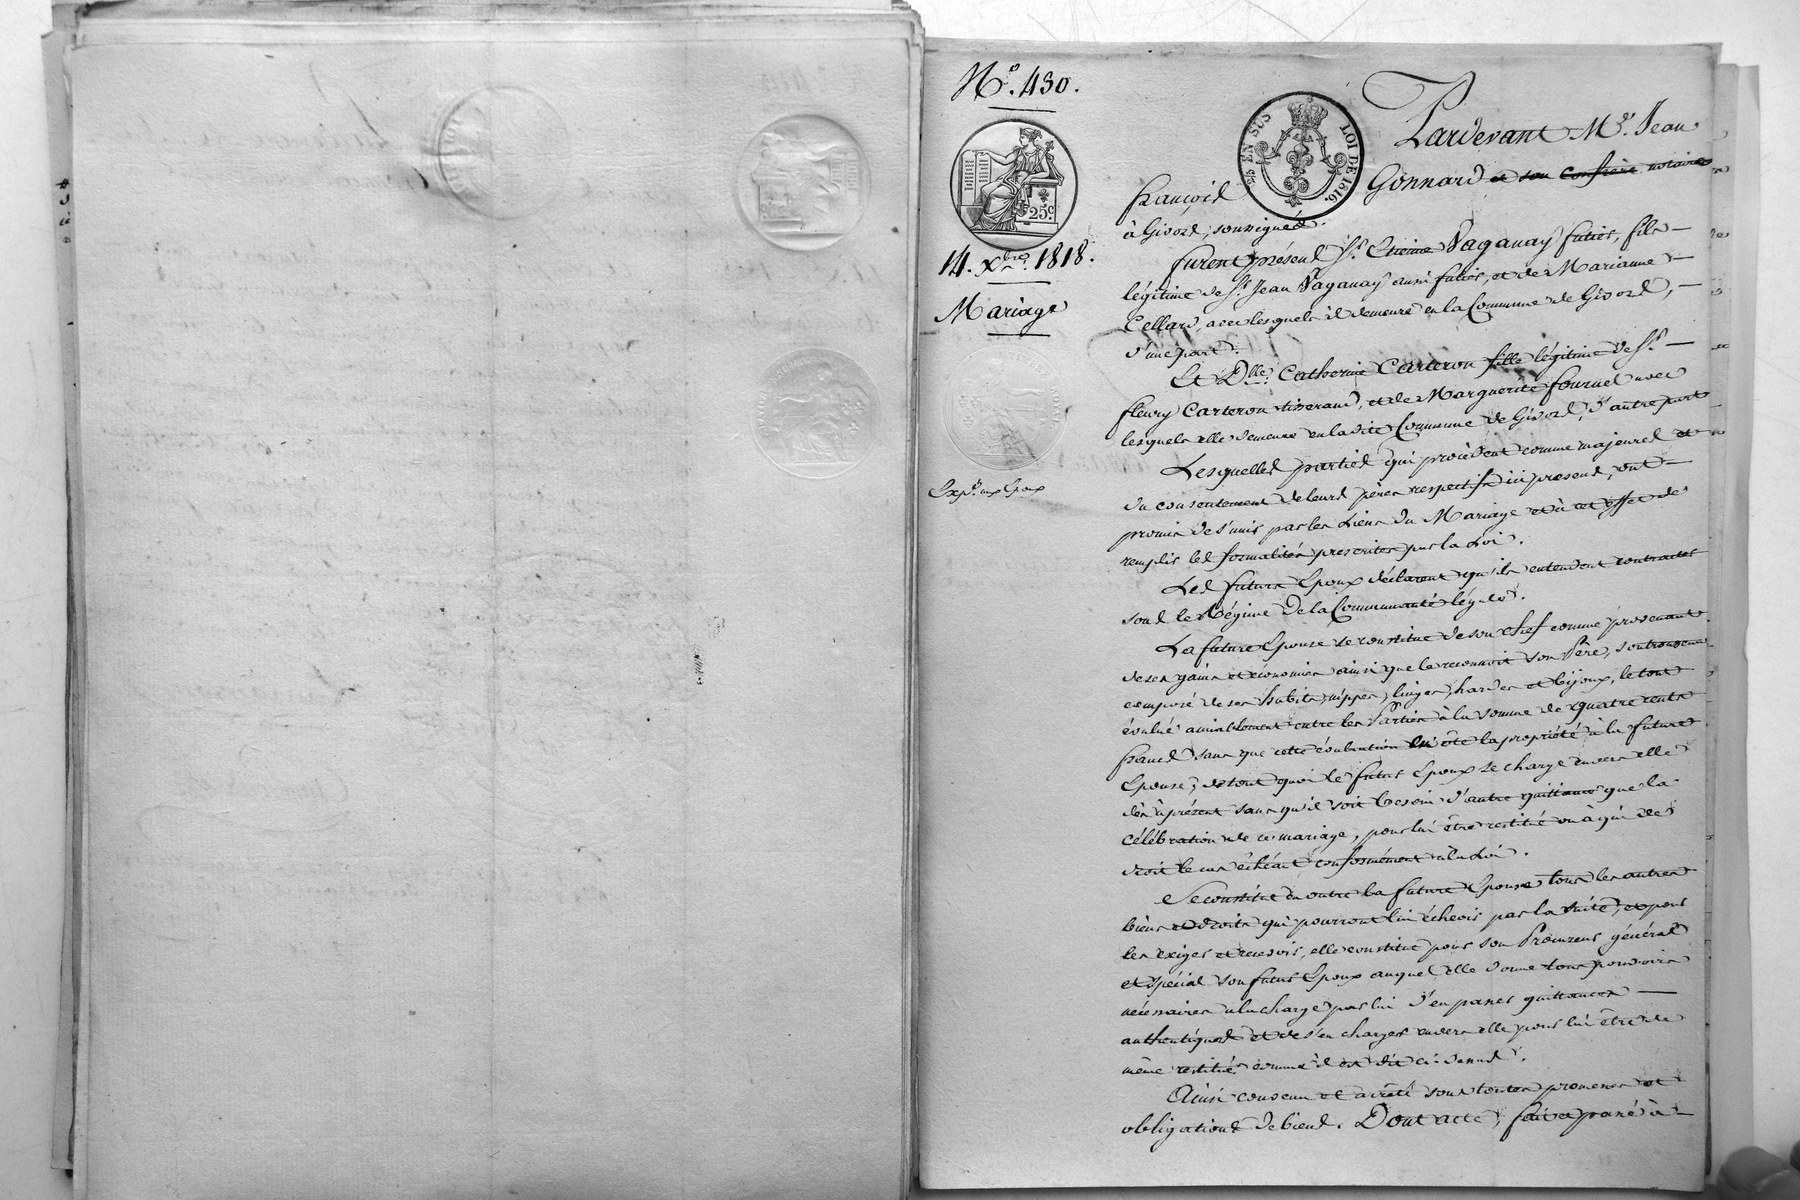 N.° 430.
25c
14. Xbre. 1818.
Mariage
Exp. aux Epoux
EN SUS
LOI DE 1816.
Pardevant Me. Jean
françois Gonnard et son Confrère notaire
à Givors, soussigné.
furent présens Sr. Etienne Vaganay futier, fils
légitime de Sr. Jean Vaganay aussi futier, et de Marianne
Cellard, avec lesquels il demeure en la Commune de Givors,
d'une part.
Et Dlle. Catherine Carteron fille légitime de Sr.
fleury Carteron tisserand, et de Marguerite fournel avec
lesquels elle demeure en la dite Commune de Givors, d'autre part
Lesquelles parties qui procèdent comme majeures et
du consentement de leurs pères respectifs ici présens, ont
promis de s'unir par les Liens du Mariage et à cet effet de
remplir les formalités prescrites par la Loi.
Les futurs Epoux déclarent qu'ils entendent contracter
sous le Régime de la Communauté légale.
La future Epouse se constitue de son chef comme provenant
de ses gains et économies ainsi que le reconnoit son Père, son trousseau
composé de ses habits, nippes, linges, hardes et bijoux, le tout
évalué amiablement entre les Parties à la somme de quatre cents
francs sans que cette évaluation en ôte la propriété à la future
Epouse; de tout quoi le futur Epoux se charge envers elle
dès à présent sans qu'il soit besoin d'autre quittance que la
célébration de ce mariage, pour lui être restitué ou à qui de
droit le cas échéant conformément à la Loi.
Se constitue en outre la future Epouse tous les autres
biens et droits qui pourront lui échevoir par la suite, et pour
les exiger et recevoir, elle constitue pour son Procureur général
et spécial son futur Epoux auquel elle donne tous pouvoirs
nécessaires à la charge par lui d'en passer quittances
authentiques et de s'en charger envers elle pour lui être de
même restitué comme il est dit ci-dessus.
Ainsi convenu et arrêté sous toutes promesses et
obligations de biens. Dont acte, fait et passé à